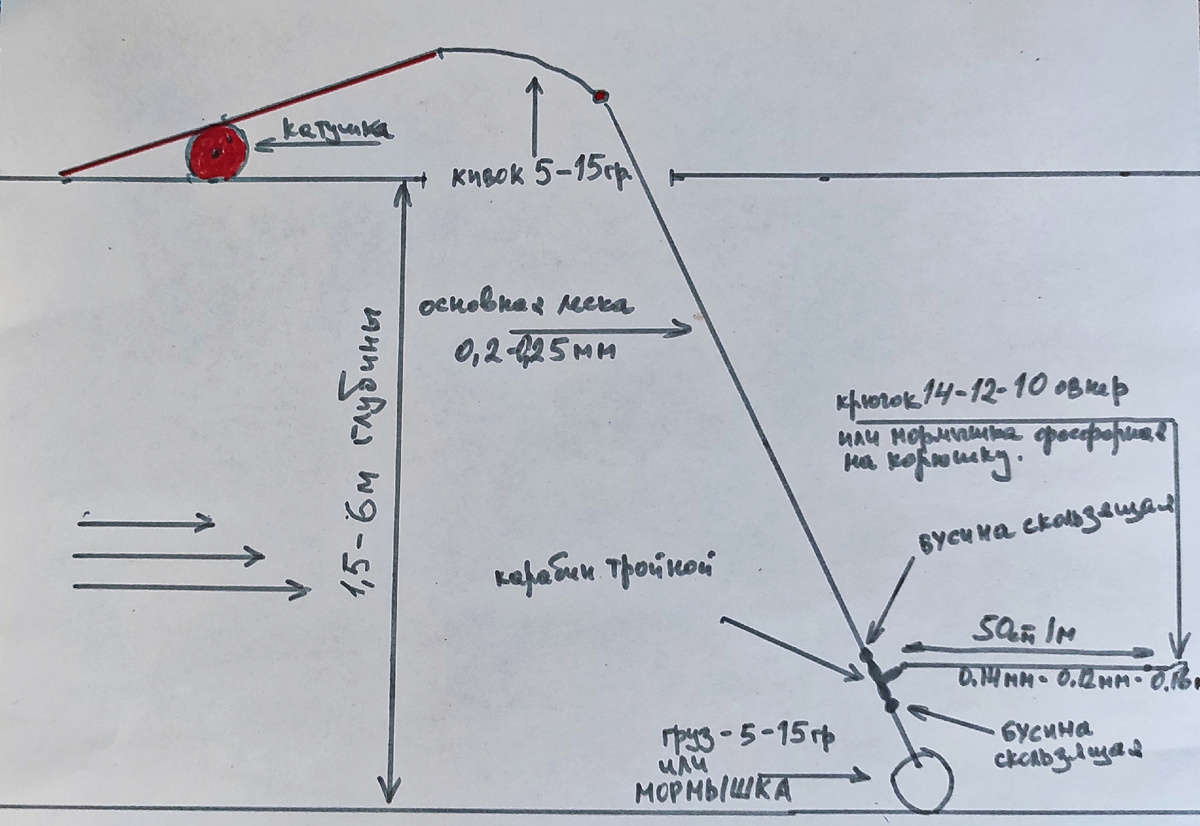 катушка
кивок 5-15гр.
основная леска
0,2-0,25мм
1,5-6м глубины
крючок 14-12-10 овнер
или мормышка фосфорная
на корюшку.
бусина скользящая
карабин тройной
50см 1м
0.14мм- 0.12мм- 0.16
груз-5-15гр
или
МОРМЫШКА
бусина
скользящая